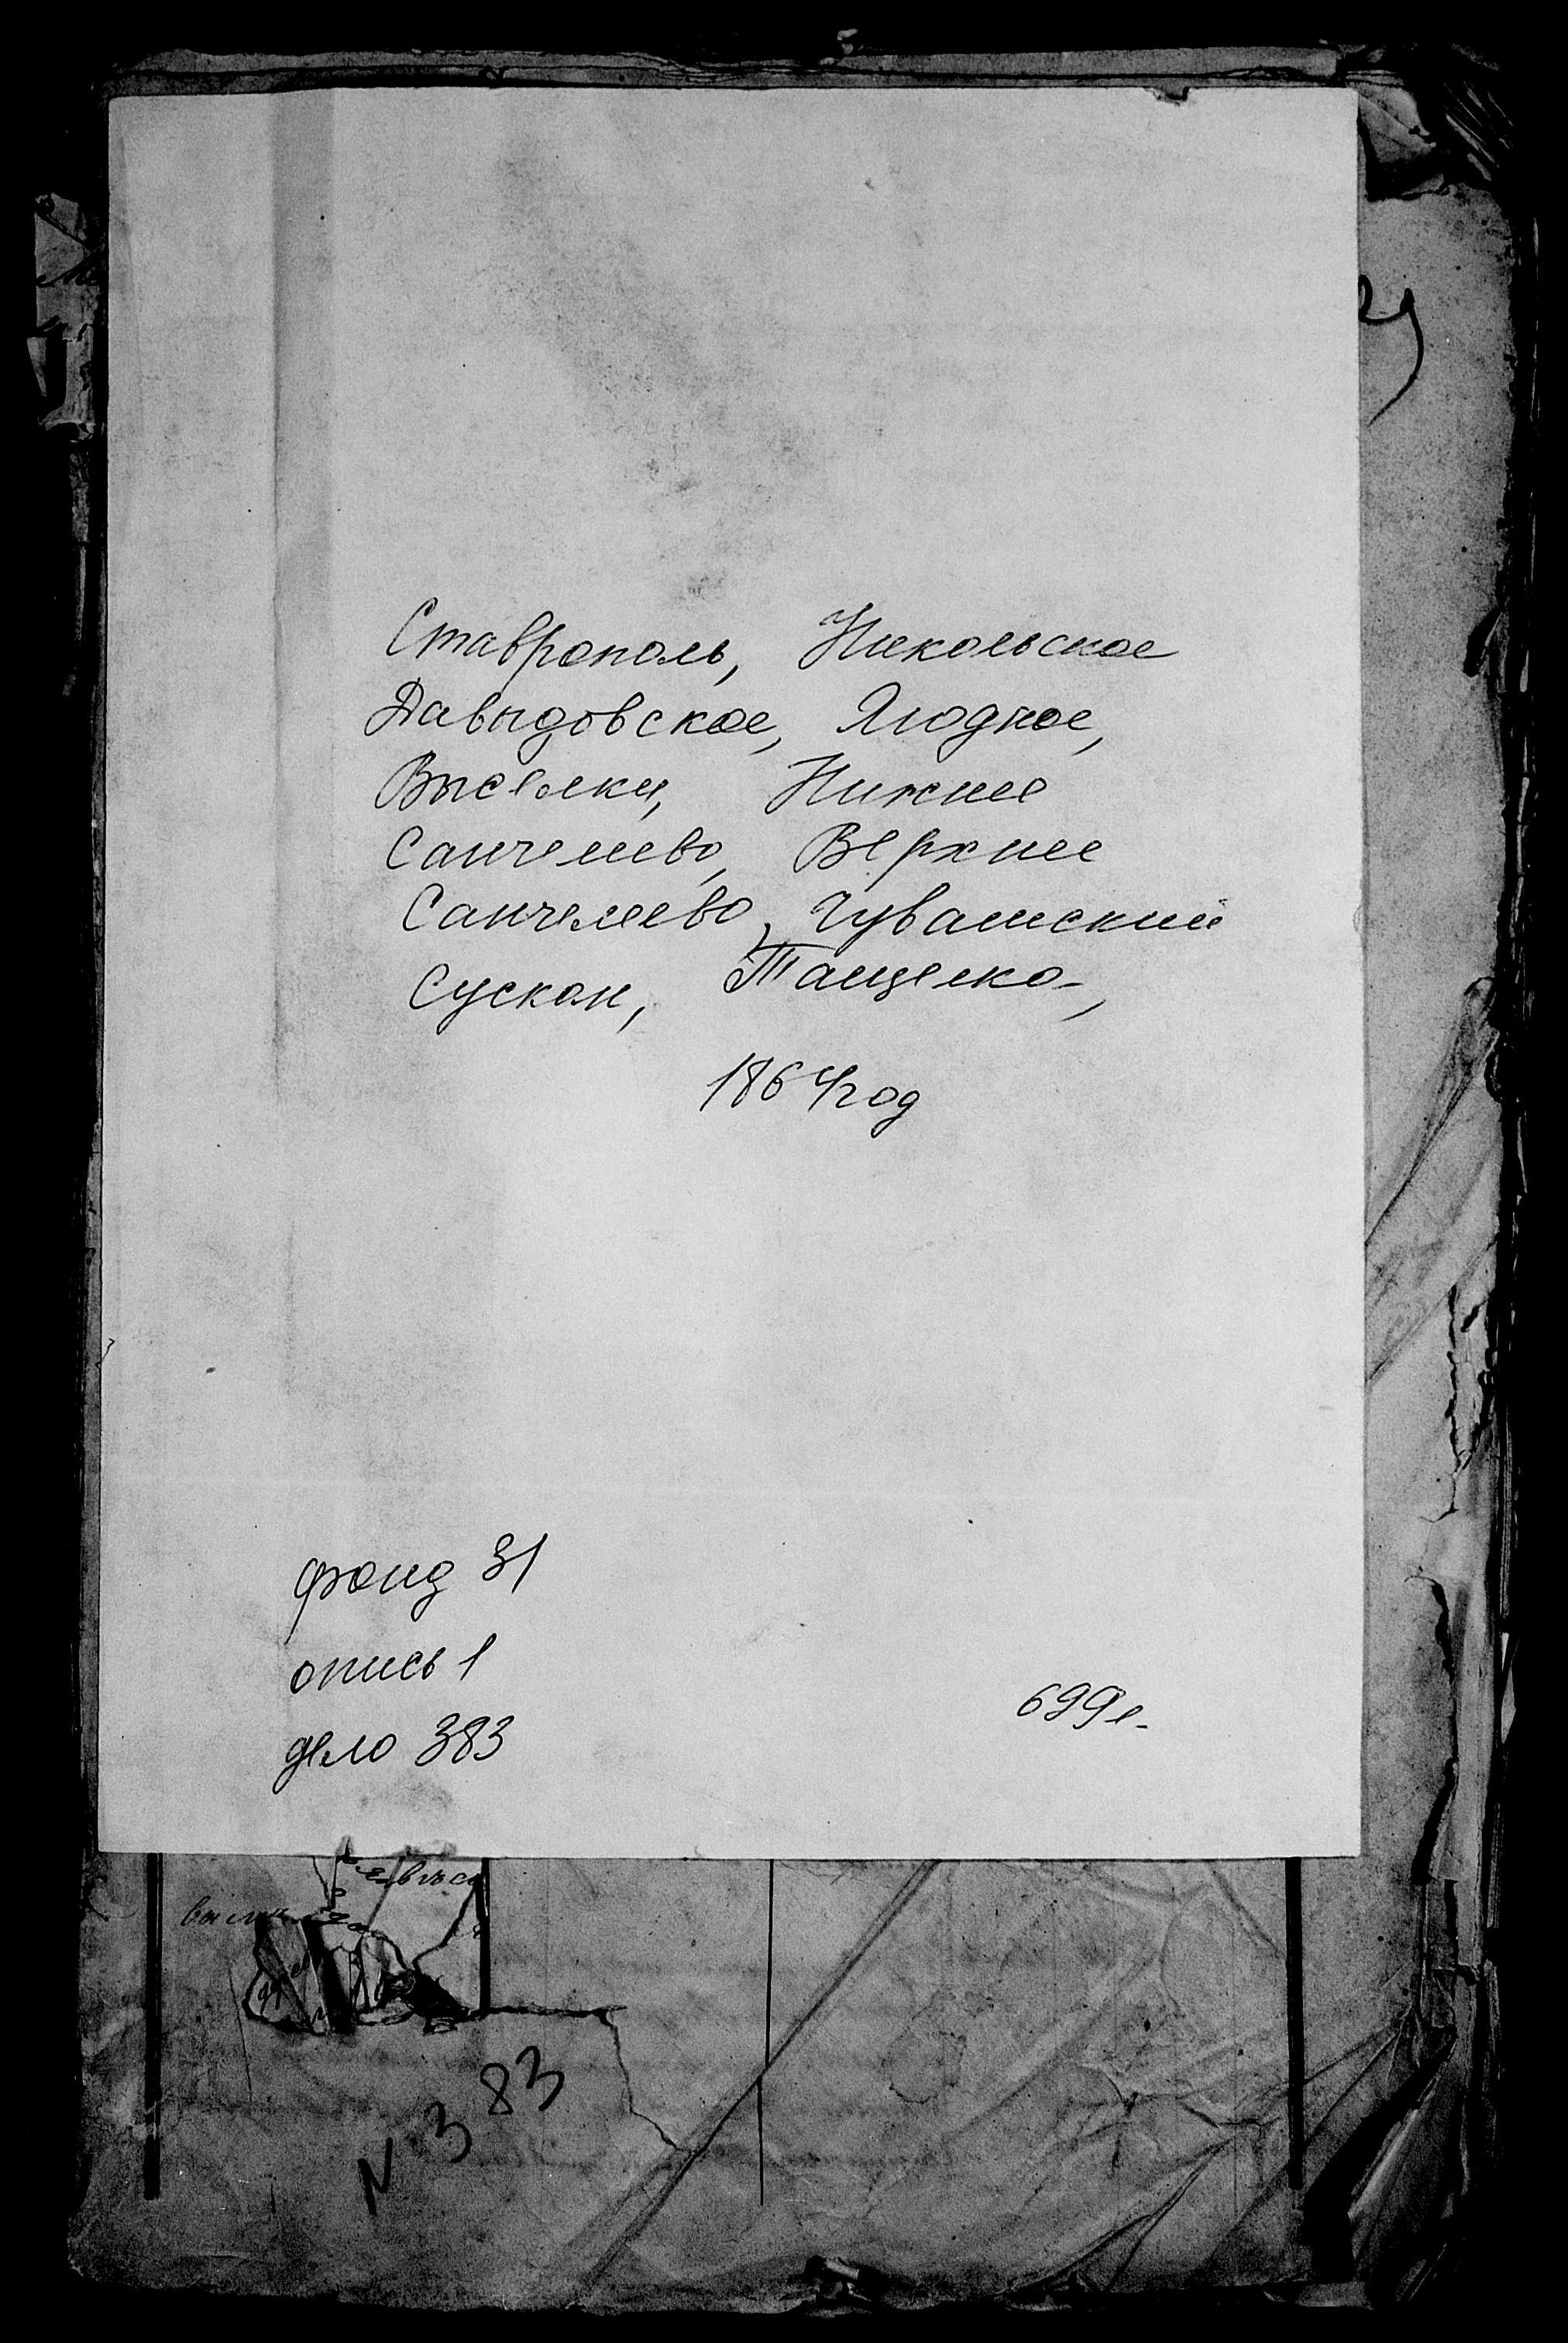 Ставрополь, Никольское
Давыдовское, Ягодное,
Выселки, Нижнее
Санчелеево, Верхнее
Санчелеево, Чувашский
Сускан, Ташелка,
1864 год
фонд 31
опись 1
дело 383
699 л.
N 383